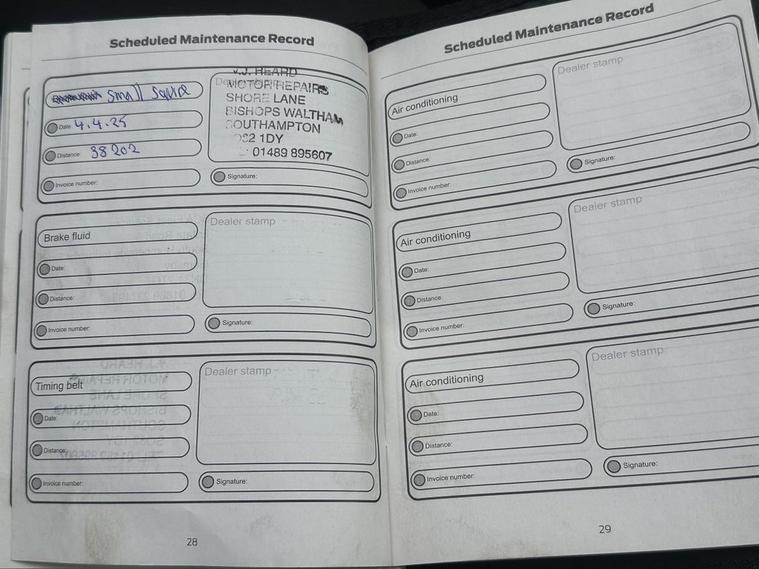 Scheduled Maintenance Record
Small Squire
Date: 4.4.25
Distance: 38202
Invoice number:
Dealer stamp
V.J. HEARD
MOTOR REPAIRS
SHORE LANE
BISHOPS WALTHAM
SOUTHAMPTON
SO32 1DY
01489 895607
Signature:
Brake fluid
Date:
Distance:
Invoice number:
Dealer stamp
Signature:
Timing belt
Date:
Distance:
Invoice number:
Dealer stamp
Signature:
28
Scheduled Maintenance Record
Air conditioning
Date:
Distance:
Invoice number:
Dealer stamp
Signature:
Air conditioning
Date:
Distance:
Invoice number:
Dealer stamp
Signature:
Air conditioning
Date:
Distance:
Invoice number:
Dealer stamp
Signature:
29